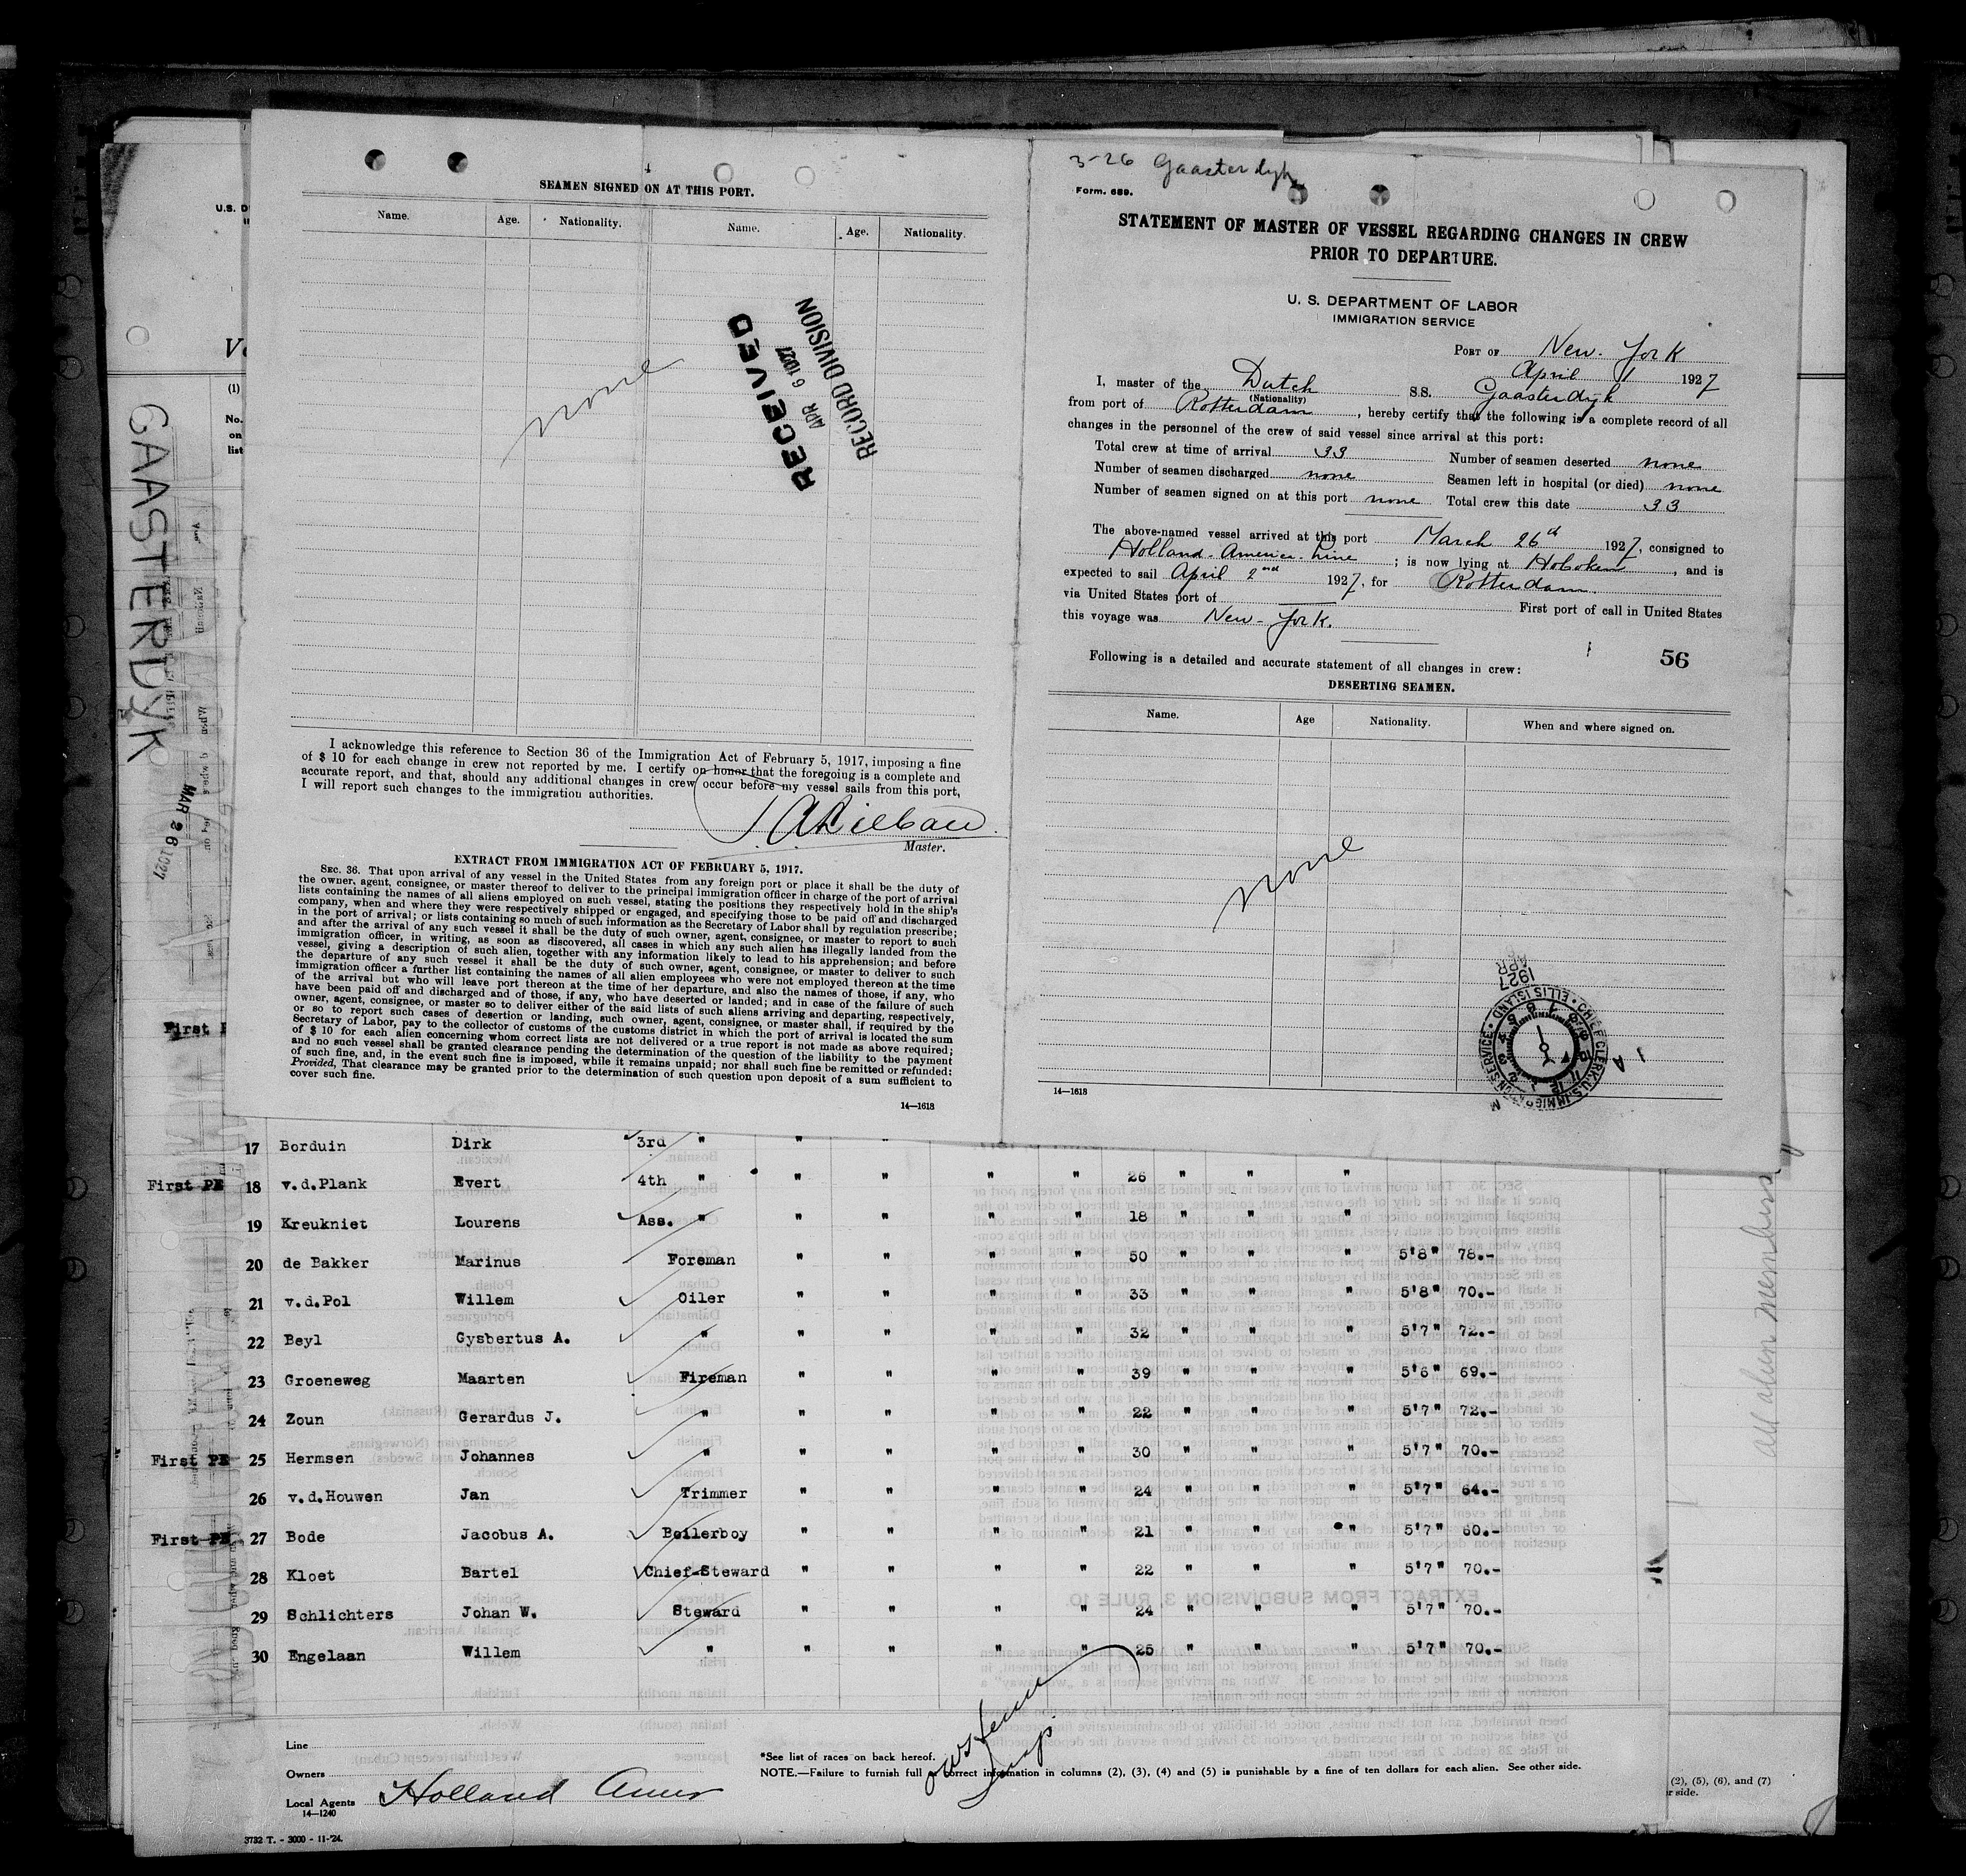 SEAMEN SIGNED ON AT THIS PORT.
Name. Age. Nationality. Name. Age. Nationality.
none
RECEIVED
APR 6 1927
RECORD DIVISION
I acknowledge this reference to Section 36 of the Immigration Act of February 5, 1917, imposing a fine
of $ 10 for each change in crew not reported by me. I certify on honor that the foregoing is a complete and
accurate report, and that, should any additional changes in crew occur before my vessel sails from this port,
I will report such changes to the immigration authorities.
Master.
EXTRACT FROM IMMIGRATION ACT OF FEBRUARY 5, 1917.
SEC. 36. That upon arrival of any vessel in the United States from any foreign port or place it shall be the duty of
the owner, agent, consignee, or master thereof to deliver to the principal immigration officer in charge of the port of arrival
lists containing the names of all aliens employed on such vessel, stating the positions they respectively hold in the ship's
company, when and where they were respectively shipped or engaged, and specifying those to be paid off and discharged
in the port of arrival; or lists containing so much of such information as the Secretary of Labor shall by regulation prescribe;
and after the arrival of any such vessel it shall be the duty of such owner, agent, consignee, or master to report to such
immigration officer, in writing, as soon as discovered, all cases in which any such alien has illegally landed from the
vessel, giving a description of such alien, together with any information likely to lead to his apprehension; and before
the departure of any such vessel it shall be the duty of such owner, agent, consignee, or master to deliver to such
immigration officer a further list containing the names of all alien employees who were not employed thereon at the time
of the arrival but who will leave port thereon at the time of her departure, and also the names of those, if any, who
have been paid off and discharged and of those, if any, who have deserted or landed; and in case of the failure of such
owner, agent, consignee, or master so to deliver either of the said lists of such aliens arriving and departing, respectively,
or so to report such cases of desertion or landing, such owner, agent, consignee, or master shall, if required by the
Secretary of Labor, pay to the collector of customs of the customs district in which the port of arrival is located the sum
of $ 10 for each alien concerning whom correct lists are not delivered or a true report is not made as above required;
and no such vessel shall be granted clearance pending the determination of the question of the liability to the payment
of such fine, and, in the event such fine is imposed, while it remains unpaid; nor shall such fine be remitted or refunded:
Provided, That clearance may be granted prior to the determination of such question upon deposit of a sum sufficient to
cover such fine.
14—1618
3-26 Gaasterdyk
Form. 689.
STATEMENT OF MASTER OF VESSEL REGARDING CHANGES IN CREW
PRIOR TO DEPARTURE.
U. S. DEPARTMENT OF LABOR
IMMIGRATION SERVICE
PORT OF New-York
April 1 1927
I, master of the Dutch S.S. Gaasterdyk
(Nationality)
from port of Rotterdam, hereby certify that the following is a complete record of all
changes in the personnel of the crew of said vessel since arrival at this port:
Total crew at time of arrival 33 Number of seamen deserted none
Number of seamen discharged none Seamen left in hospital (or died) none
Number of seamen signed on at this port none Total crew this date 33
The above-named vessel arrived at this port March 26th 1927, consigned to
Holland-America-Line; is now lying at Hoboken, and is
expected to sail April 2nd 1927, for Rotterdam.
via United States port of First port of call in United States
this voyage was New-York.
56
Following is a detailed and accurate statement of all changes in crew:
DESERTING SEAMEN.
Name. Age Nationality. When and where signed on.
none
APR
1927
CHIEF CLERK U.S. IMMIGRATION SERVICE ELLIS ISLAND
14—1618
GAASTERDYK
MAR 26 1927
U.S. D
(1)
No.
on
list
First
17 Borduin Dirk 3rd " " "
First PE 18 v.d.Plank Evert 4th " " " " " 26 " " "
19 Kreukniet Lourens Ass. " " " " " 18 " " "
20 de Bakker Marinus Foreman " " " " 50 " " " 5'8" 78.-
21 v.d.Pol Willem Oiler " " " " 33 " " " 5'8" 70.-
22 Beyl Gysbertus A. " " " " " 32 " " " 5'7" 72.-
23 Groeneweg Maarten Fireman " " " " 39 " " " 5'6" 69.-
24 Zoun Gerardus J. " " " " " 22 " " " 5'7" 72.-
First PE 25 Hermsen Johannes " " " " " 30 " " " 5'7" 70.-
26 v.d.Houwen Jan Trimmer " " " " 24 " " " 5'7" 64.-
First PE 27 Bode Jacobus A. Boilerboy " " " " 21 " " " 5'7" 60.-
28 Kloet Bartel Chief-Steward " " " " 22 " " " 5'7" 70.-
29 Schlichters Johan W. Steward " " " " 24 " " " 5'7" 70.-
30 Engelaan Willem " " " " " 25 " " " 5'7" 70.-
Line
Owners
Local Agents Holland Amer
14—1240
3732 T. - 3000 - 11-'24.
*See list of races on back hereof.
NOTE.—Failure to furnish full or correct information in columns (2), (3), (4) and (5) is punishable by a fine of ten dollars for each alien. See other side.
(2), (5), (6), and (7)
r side.
all alien members